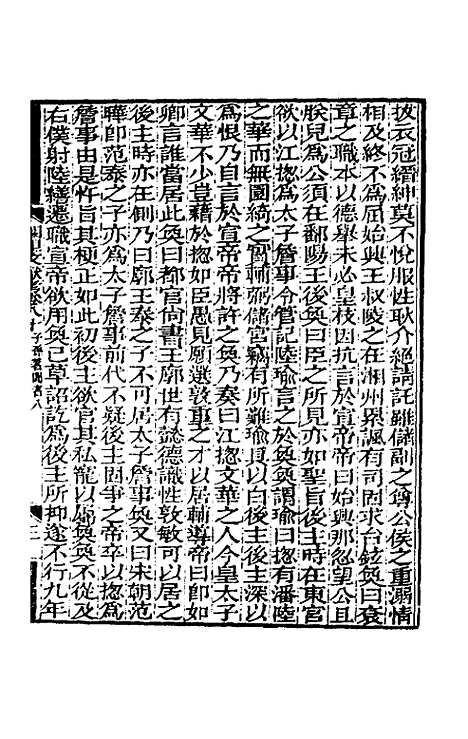 拔衣冠縉紳莫不悅服性耿介絕請託雖儲副之尊公侯之重溺情
相及終不為屈始興王叔陵之在湘州累諷有司固求台鉉奐曰袞
章之職本以德舉未必皇枝因抗言於宣帝帝曰始興那忽望公且
朕兒為公須在鄱陽王後奐曰臣之所見亦如聖旨後主時在東宮
欲以江揔為太子詹事令管記陸瑜言之於奐奐謂瑜曰揔有潘陸
之華而無園綺之實輔弼儲宮竊有所難瑜具以白後主後主深以
為恨乃自言於宣帝帝將許之奐乃奏曰江揔文華之人今皇太子
文華不少豈藉於揔如臣愚見願選敦重之才以居輔導帝曰卽如
卿言誰當居此奐曰都官尚書王廓世有懿德識性敦敏可以居之
後主時亦在側乃曰廓王泰之子不可居太子詹事奐又曰宋朝范
曄卽范泰之子亦為太子詹事前代不疑後主固爭之帝卒以揔為
詹事由是忤旨其梗正如此初後主欲官其私寵以屬奐奐不從及
右僕射陸繕遷職宣帝欲用奐已草詔訖為後主所抑遂不行九年